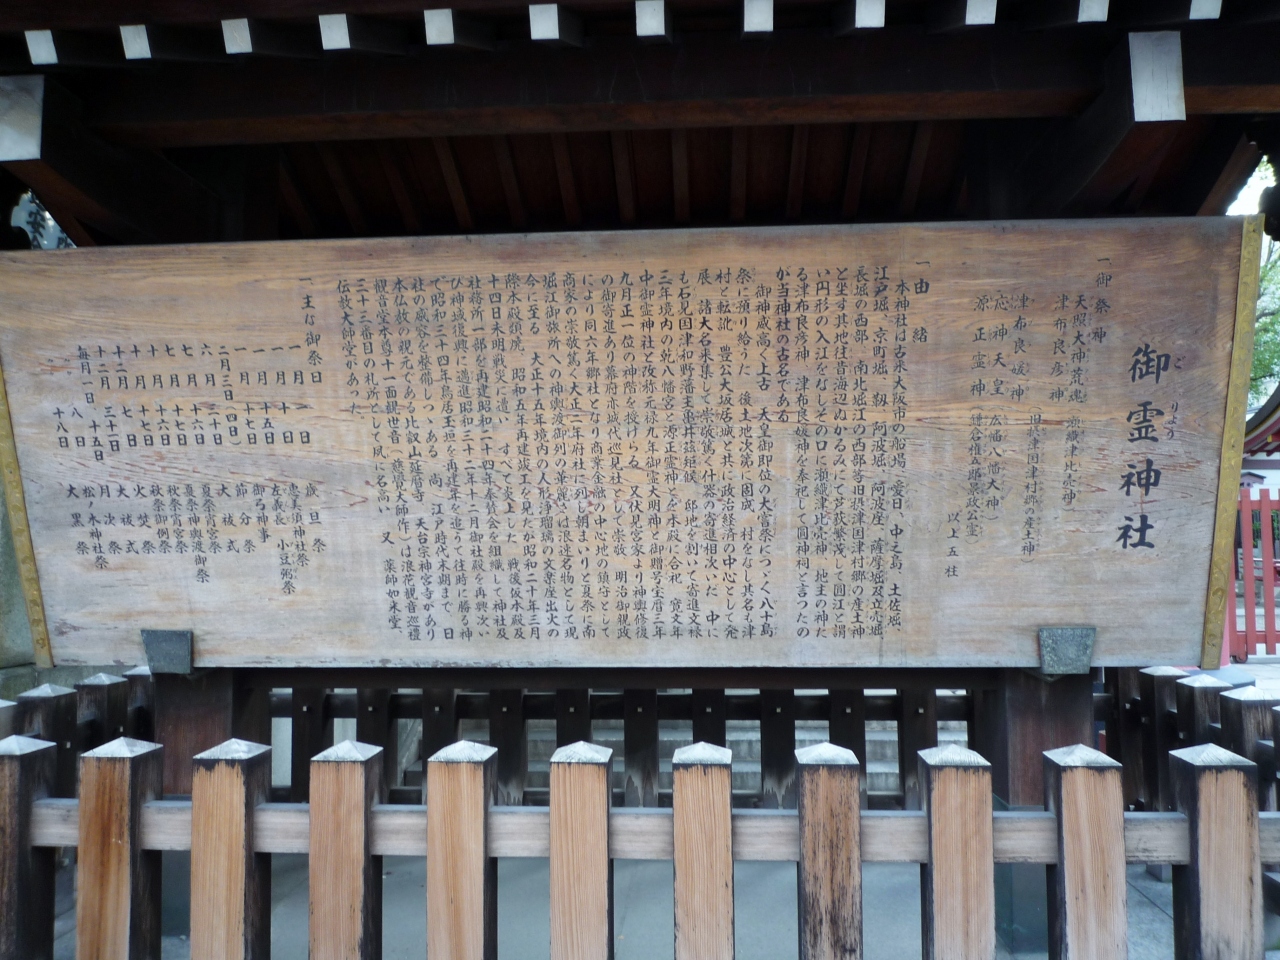 御霊神社
ごりょう
一御祭神
天照大神荒魂（瀬織津比売神）
津布良彦神
津布良媛神（旧摂津国津村郷の産土神）
応神天皇（広幡八幡大神）
源正霊神（鎌倉権五郎景政公霊）
以上五柱
一由緒
本神社は古来大阪市の船場、愛日、中之島、土佐堀、
江戸堀、京町堀、靱、阿波堀、阿波座、薩摩堀及立売堀、
長堀の西部、南北堀江の西部等旧摂津国津村郷の産土神
と坐す其地往昔海辺ぬかるみにて芦荻繁茂して円江と謂
い円形の入江をなしその口に瀬織津比売神、地主の神た
る津布良彦神、津布良媛神を奉祀して圓神祠と言ったの
が当神社の古名である
御神威高く上古、天皇御即位の大嘗祭につゞく八十島
祭に預り給うた。後土地次第に固成、村をなし其名も津
村と転訛、豊公大坂居城と共に政治経済の中心として発
展、諸大名来集して崇敬篤く什器の寄進相次いだ。中に
も石見国津和野藩主亀井茲矩侯、邸地を割いて寄進文禄
三年境内の乾八幡宮と源正霊神とを本殿に合祀、寛文年
中御霊神社と改称元禄九年御霊大明神と御贈号宝暦三年
九月正一位の神階を授けらる。又伏見宮家より神輿修復
の御寄進あり幕府亦城代巡見社として崇敬、明治御親政
により同六年郷社となり商業金融の中心地の鎮守として
商家の崇敬篤く大正二年府社に列し朝まいりと夏祭に南
堀江御旅所への神輿渡御列の華麗さは浪速名物として現
今に至る。大正十五年境内の人形浄瑠璃の文楽座出火の
際本殿類焼、昭和五年再建竣工を見たが昭和二十年三月
十四日未明戦災に遭い、すべて炎上した。戦後仮本殿及
社務所一部を再建昭和二十四年奉賛会を組織して神社及
び神域復興に邁進昭和三十二年十二月御社殿を再興次い
で昭和三十四年鳥居玉垣を再建年を追うて往時に勝る神
社の威容を整備しつゝある。尚、江戸時代末期まで、日
本仏教の祖元である比叡山延暦寺、天台宗神宮寺があり
観音堂本尊十一面観世音（慈覺大師作）は浪花観音巡禮
三十三番の日の札所として夙に名高い、又、薬師如来堂、
伝教大師堂があった
一主な御祭
一月一日 歳旦祭
一月十日 恵美須神社祭
一月十五日 左義長、小豆粥祭
一月十七日 御弓神事
二月三日 節分祭
六月三十日 大祓式
七月十六日 夏祭宵宮祭
七月十七日 夏祭神輿渡御祭
十月十六日 秋祭宵宮祭
十月十七日 秋祭例祭
十一月十七日 火焚祭
十二月三十一日 大祓式
毎月一日、十五日 月次祭
十八日 松ノ木神社祭
八日 大黒祭